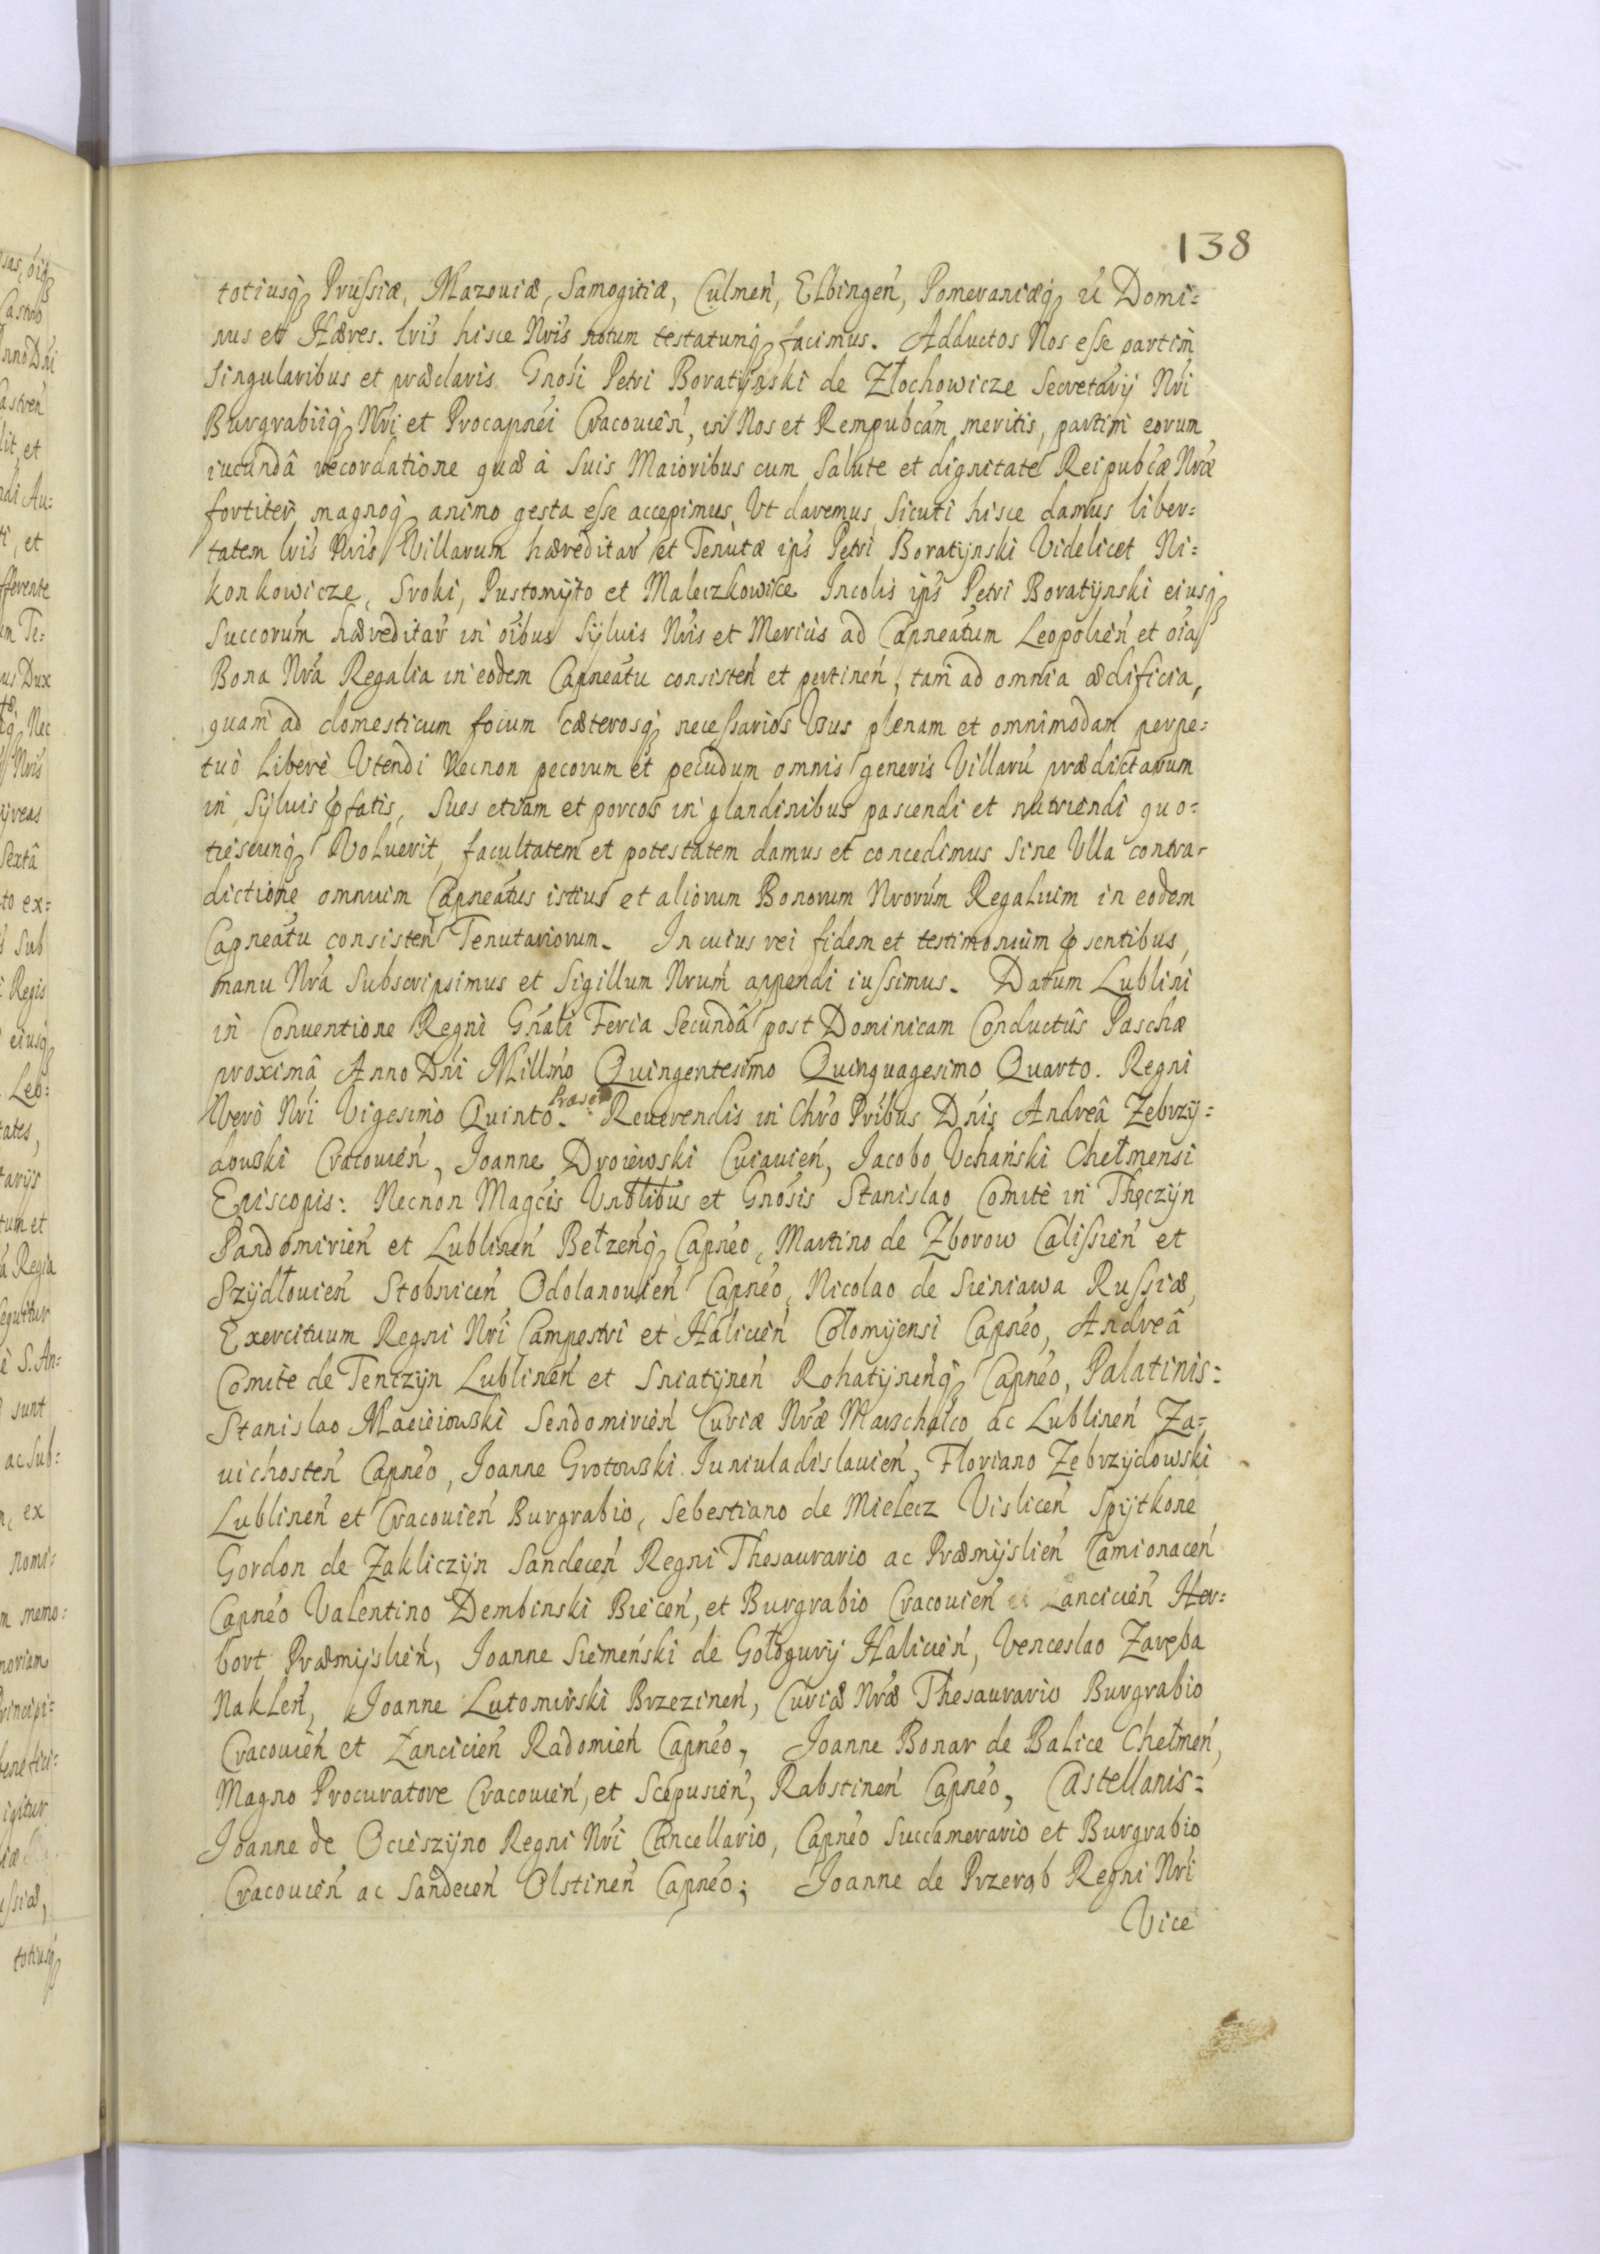 138
totiusq₃ Prussiæ, Mazouiæ, Samogitiæ, Culmeń, Elbingeń, Pomeraniæq₃ ú Domi=
nus et Hæres. lris hisce Nris notum testatumq₃ facimus. Adductos Nos esse partim
singularibus et præclaris Gnosi Petri Boratÿnski de Złochowicze Secretarÿ Nri
Burgrabiiq₃ Nri et Procapnei Cracouień, in Nos et Rempubcam meritis, partim eorum
iucundâ recordatione quæ à suis Maioribus cum salute et dignitate Reipubcæ Nræ
fortiter magnoq₃ animo gesta esse accepimus, Vt daremus sicuti hisce damus liber=
tatem lris Nris Villarum hæreditar et Tenutæ ips Petri Boratÿnski Videlicet Ni=
konkowicze, Sroki, Pustomÿto et Maleczkowice Incolis ips Petri Boratÿnski eiusq₃
Succorum hæreditar in oibus sÿluis Nris et Mericis ad Capneatum Leopolień et oia
Bona Nra Regalia in eodem Capneatu consisteń et pertineń, tam ad omnia ædificia,
quam ad domesticum focum cæterosq₃ necessarios Vsus plenam et omnimodam perpe=
tuò Liberè Vtendi Necnon pecorum et pecudum omnis generis Villaru prædictarum
in sÿluis pfatis, sues etiam et porcos in glandinibus pascendi et nutriendi quo=
tiescunq₃ Voluerit, facultatem et potestatem damus et concedimus sine Vlla contra=
dictione omnium Capneatus istius et aliorum Bonorum Nrorum Regalium in eodem
Capneatu consisteń Tenutariorum. In cuius rei fidem et testimonium psentibus,
manu Nra Subscripsimus et Sigillum Nrum appendi iussimus. Datum Lublini
in Conuentione Regni Gnali Feria Secundâ post Dominicam Conductûs Paschæ
proximâ Anno Dni Millmo Quingentesimo Quinquagesimo Quarto. Regni
Verò Nri Vigesimò Quinto. Reuerendis in Chro Pribus Dnis Andreâ Zebrzÿ=
dowski Cracouień, Joanne Droiewski Cuiauień, Jacobo Vchański Chełmensi
Episcopis: Necnon Magcis Vnblibus et Gnosis Stanislao Comite in Thęczÿn
Sandomirień et Lublineń Bełzeńq₃ Capneo, Martino de Zborow Calissień et
Szÿdłouień Stobnicień Odolanouień Capneo, Nicolao de Sieniawa Russiæ,
Exercituum Regni Nri Campestri et Halicień Cołomÿensi Capneo, Andreâ
Comite de Tenczÿn Lublineń et Sniatÿneń Rohatÿneńq₃ Capneo, Palatinis:
Stanislao Macieiowski Sendomirień Curiæ Nræ Marschalco ac Lublineń Za=
uichosteń Capneo, Joanne Grotowski Juniuladislauień, Floriano Zebrzÿdowski
Lublineń et Cracouień Burgrabio, Sebestiano de Mielecz Visliceń Spÿtkone
Gordon de Zakliczÿn Sandeceń Regni Thesaurario ac Præmÿslień Camionaceń
Capneo Valentino Dembinski Bieceń, et Burgrabio Cracouień Lancicień Her=
bort Præmÿslień, Joanne Siemeński de Gołogurÿ Halicień, Venceslao Zaręba
Nakleń, Joanne Lutomirski Brzezineń, Curiæ Nræ Thesaurario Burgrabio
Cracouień et Łancicień Radomień Capneo, Joanne Bonar de Balice Chełmeń,
Magno Procuratore Cracouień, et Scepusień, Rabstineń Capneo, Castellanis=
Joanne de Ocieszÿno Regni Nri Cancellario, Capneo Succamerario et Burgrabio
Cracouień ac Sandeceń Olstineń Capneo; Joanne de Przeręb Regni Nri
Vice